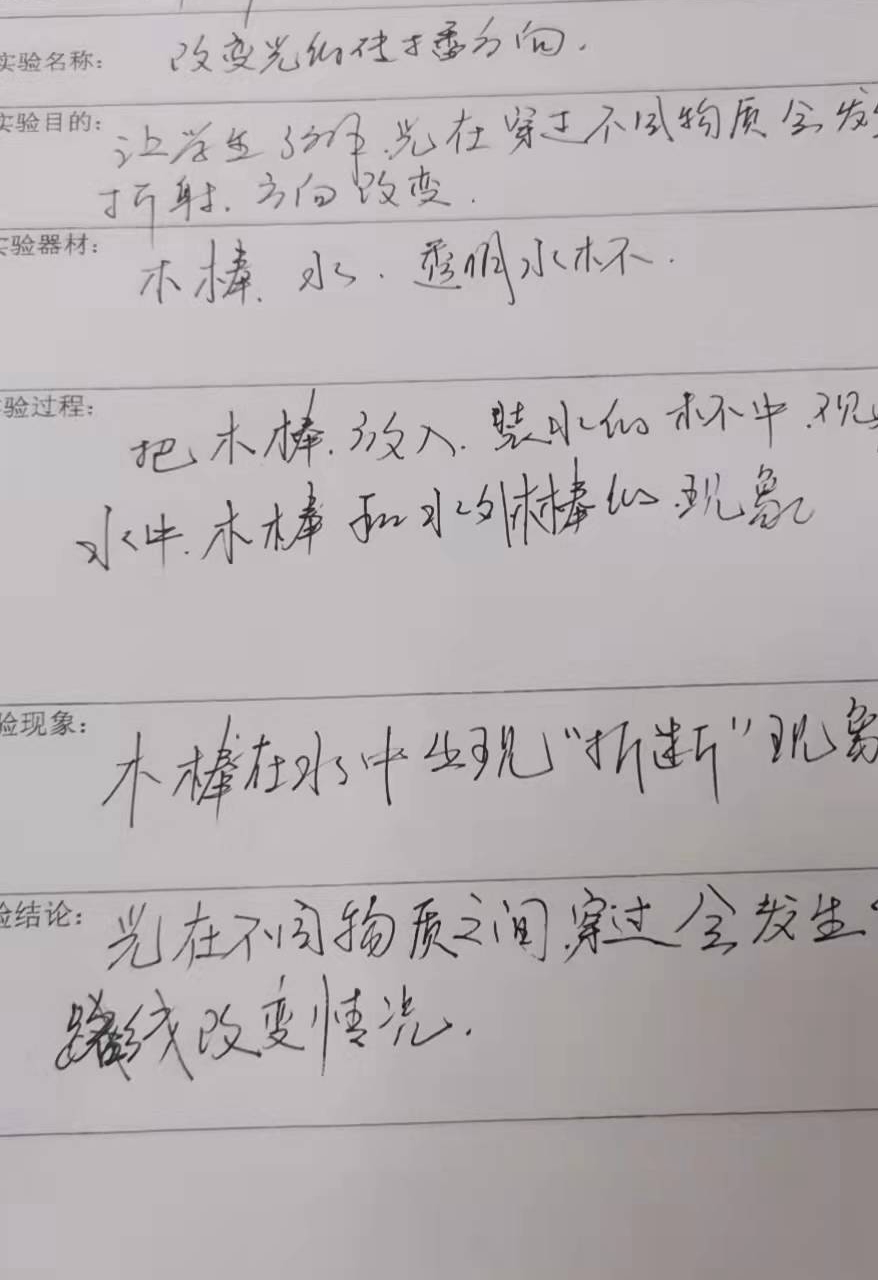 实验名称: 改变光的传播方向.
实验目的: 让学生了解.光在穿过不同物质会发生
折射.方向改变.
实验器材: 木棒. 水. 透明水杯.
验过程: 把木棒.放入.装水的杯中.观
水中.木棒和水外木棒的.现象
验现象: 木棒在水中出现“折断”现象
验结论: 光在不同物质之间.穿过会发生
路线改变情况.